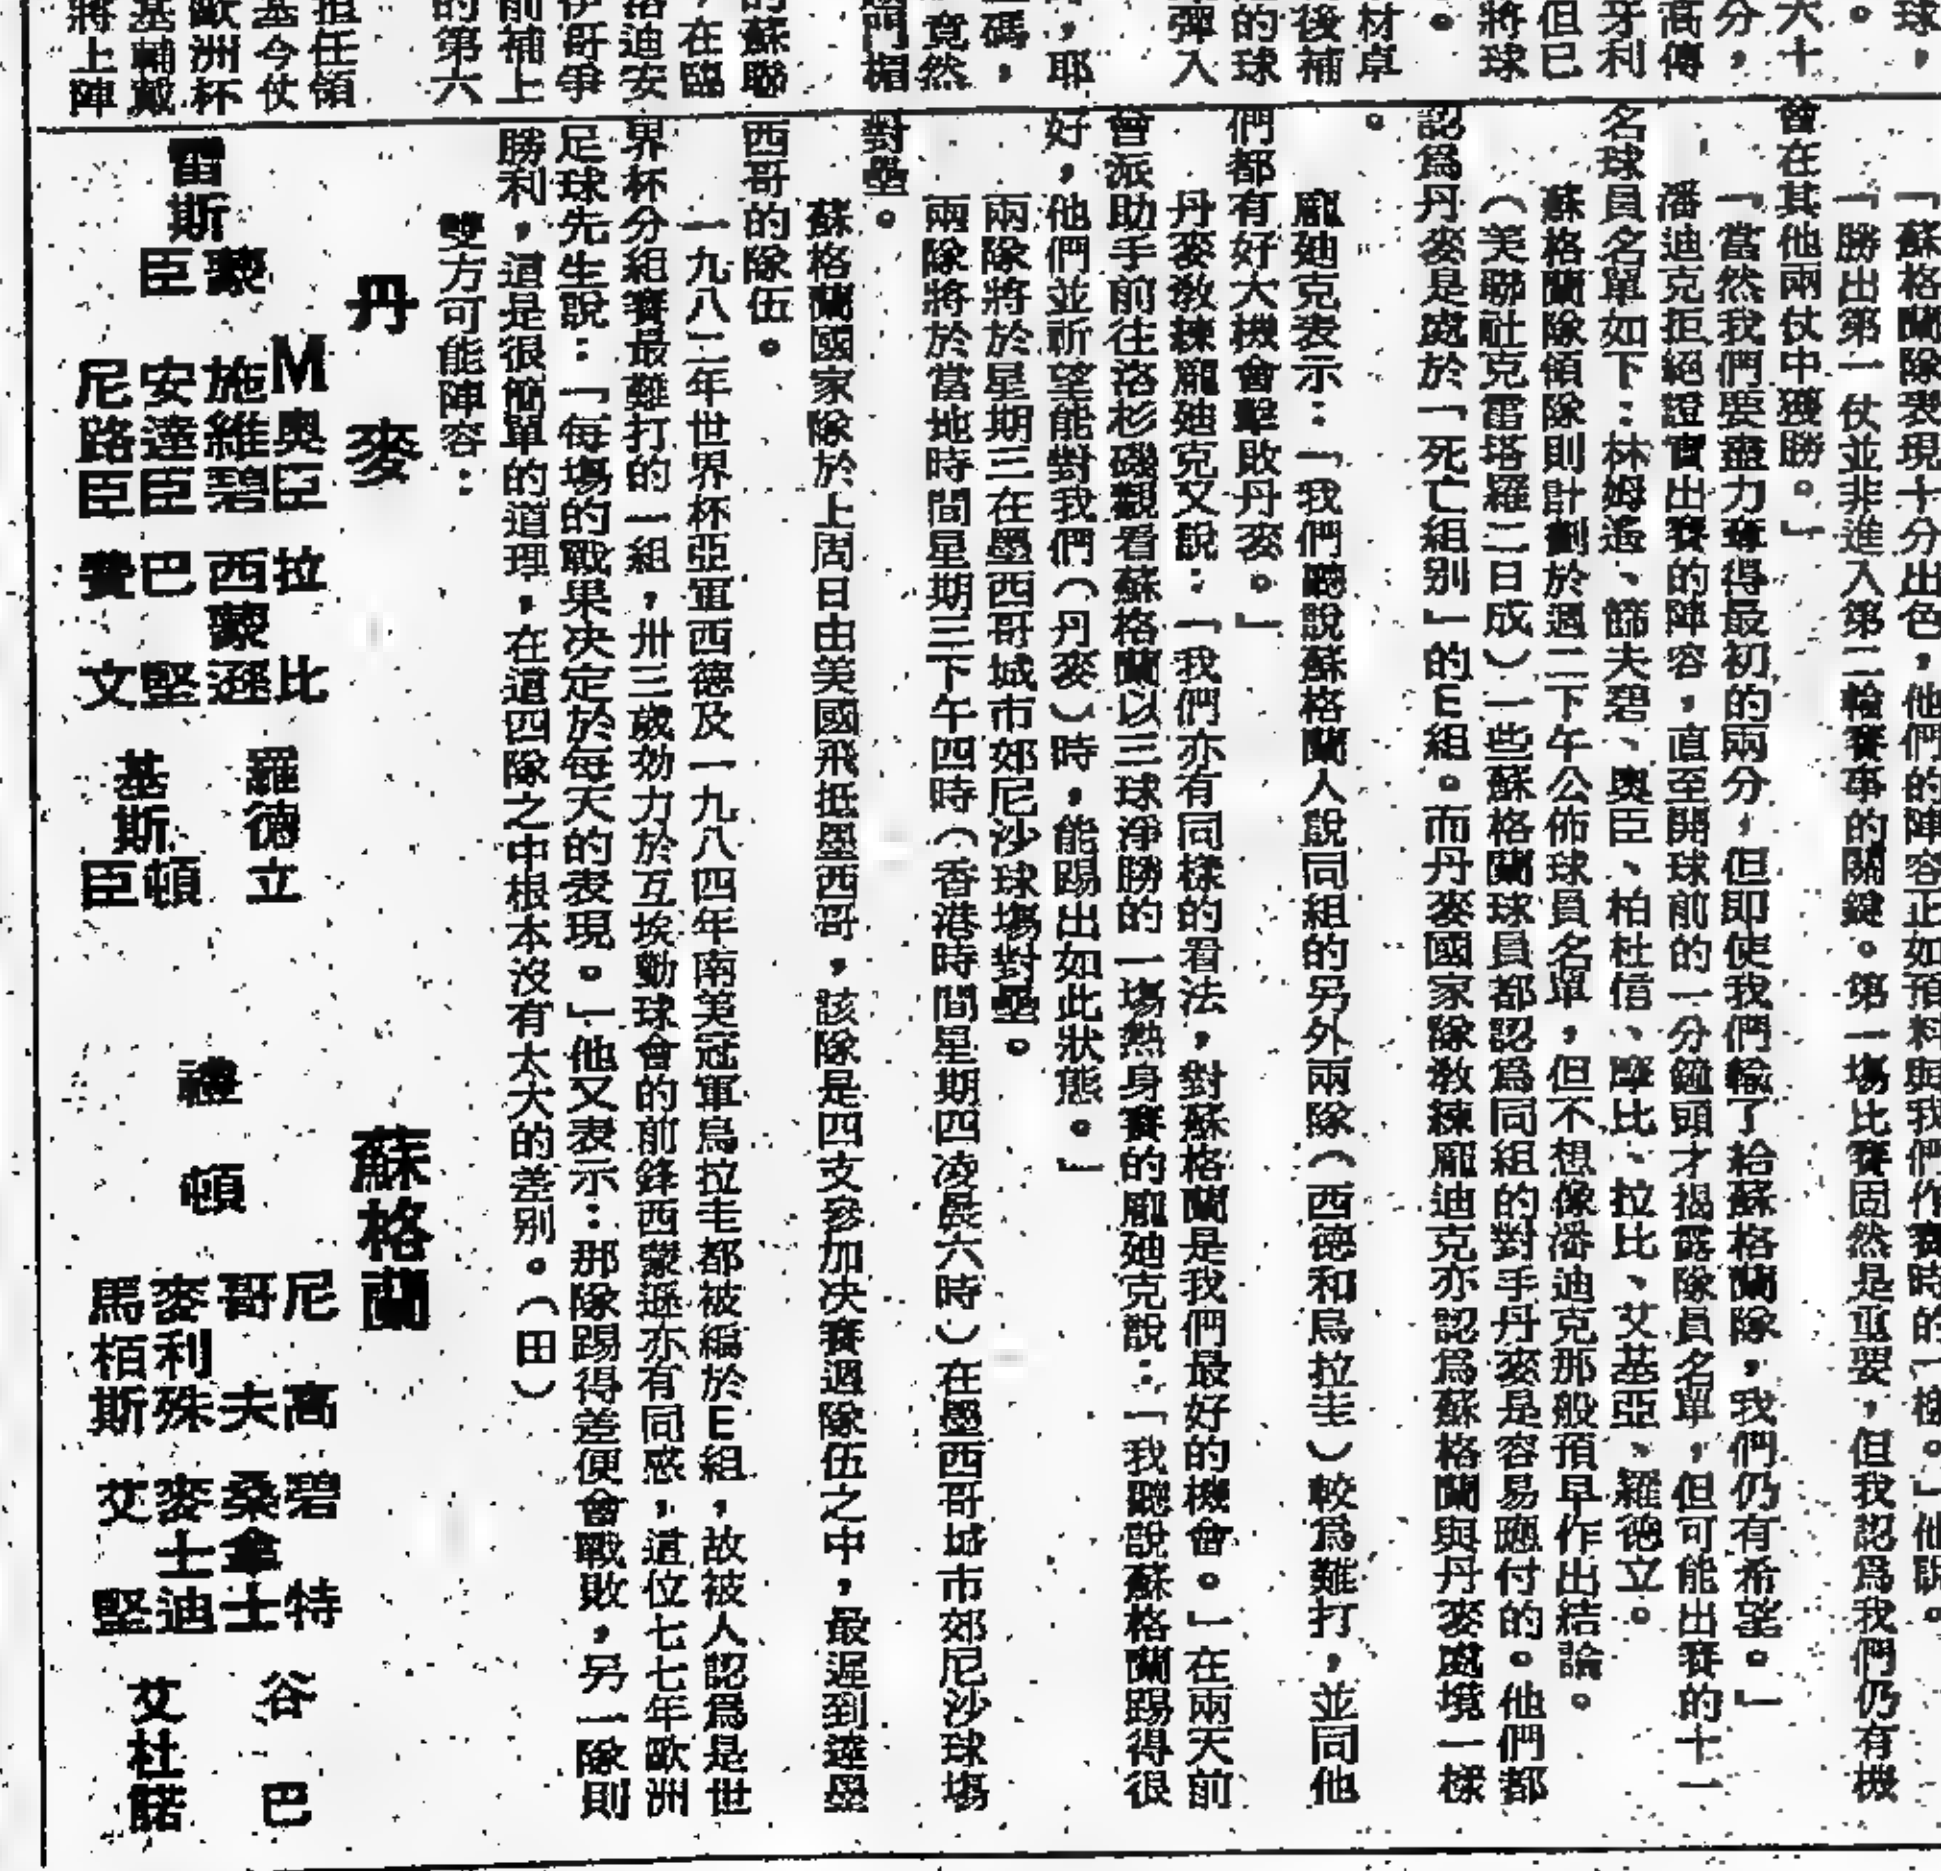 球，
。
六十
分，
高傳
牙利
但已
將球
。
材卓
後補
的球
彈入
，耶
碼，
竟然
門楣
的蘇聯
，在臨
洛迪安
伊哥爭
前補上
的第六
担任領
基今仗
歐洲杯
基輔戴
將上陣
「蘇格蘭隊表現十分出色，他們的陣容正如預料與我們作賽時的一樣。」他說。
「勝出第一仗並非進入第二輪賽事的關鍵。第一場比賽固然是重要，但我認爲我們仍有機
會在其他兩仗中獲勝。」
「當然我們要盡力奪得最初的兩分，但即使我們輸了給蘇格蘭隊，我們仍有希望。」
潘迪克拒絕證實出賽的陣容，直至開球前的一分鐘頭才揭露隊員名單，但可能出賽的十一
名球員名單如下：林姆遜、篩夫碧、奧臣、柏杜信、摩比、拉比、艾基亞、羅德立。
蘇格蘭隊領隊則計劃於週二下午公佈球員名單，但不想像潘迪克那般預早作出結論。
（美聯社克雷塔羅二日成）一些蘇格蘭球員都認爲同組的對手丹麥是容易應付的。他們都
認爲丹麥是處於「死亡組別」的Ｅ組。而丹麥國家隊教練龐迪克亦認爲蘇格蘭與丹麥處境一樣
。
龐廸克表示：「我們聽說蘇格蘭人說同組的另外兩隊（西德和烏拉圭）較爲難打，並同他
們都有好大機會擊敗丹麥。」
丹麥教練龐廸克又說：「我們亦有同樣的看法，對蘇格蘭是我們最好的機會。」在兩天前
曾派助手前往洛杉磯觀看蘇格蘭以三球淨勝的一場熱身賽的龐廸克說：「我聽說蘇格蘭踢得很
好，他們並祈望能對我們（丹麥）時，能踢出如此狀態。」
兩隊將於星期三在墨西哥城市郊尼沙球場對壘。
兩隊將於當地時間星期三下午四時（香港時間星期四凌晨六時）在墨西哥城市郊尼沙球場
對壘。
蘇格蘭國家隊於上周日由美國飛抵墨西哥，該隊是四支參加決賽週隊伍之中，最遲到達墨
西哥的隊伍。
一九八二年世界杯亞軍西德及一九八四年南美冠軍烏拉圭都被編於Ｅ組，故被人認爲是世
界杯分組賽最難打的一組，卅三歲効力於互埃動球會的前鋒西蒙遜亦有同感，這位七七年歐洲
足球先生說：「每場的戰果決定於每天的表現。」他又表示：那隊踢得差便會戰敗，另一隊則
勝利，這是很簡單的道理，在這四隊之中根本沒有太大的差別。（田）
雙方可能陣容：
丹麥
雷斯蒙臣
M奧臣
施維碧
安達臣
尼路臣
拉比
西蒙遜
巴堅
費文
羅德立
基斯頓臣
蘇格蘭
禮頓
尼高
哥夫
麥利殊
馬栢斯
碧特
桑拿士
麥士迪
艾堅
谷巴
艾杜諾